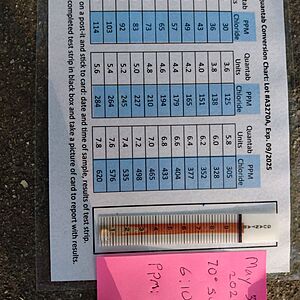 Quantab Conversion Chart: Lot #A3270A, Exp. 09/2025
PPM Quantab PPM Quantab PPM
Chloride Units Chloride Units Chloride
30 3.8 125 5.8 305
36 3.8 138 6.0 328
43 4.0 151 6.2 352
49 4.2 165 6.4 377
57 4.4 179 6.6 404
65 4.6 194 6.8 433
73 4.8 210 7.0 465
83 5.0 227 7.2 498
92 5.2 245 7.4 535
103 5.4 264 7.6 576
114 5.6 284 7.8 620
on a post-it and stick to card: date and time of sample, results of test strip.
completed test strip in black box and take a picture of card to report with results.
May
202
70°
6.10
PPM: